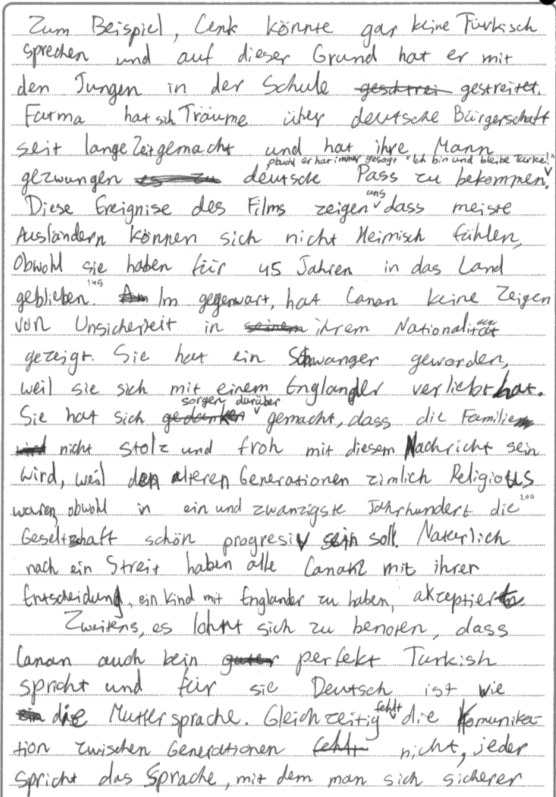 Zum Beispiel, Cenk könnte gar keine Türkisch
sprechen und auf dieser Grund hat er mit
den Jungen in der Schule gestreitet.
Fatma hat sich Träume über deutsche Bürgerschaft
seit lange Zeit gemacht und hat ihre Mann
obwohl er hat immer gesagt "Ich bin und bleibe Türke!"
gezwungen deutsche Pass zu bekommen,
Diese Ereignise des Films zeigen uns dass meiste
Ausländern können sich nicht Heimisch fühlen,
Obwohl sie haben für 45 Jahren in das Land
geblieben. 145 Im gegenwart, hat Canan keine Zeigen
von Unsicherheit in ihrem Nationalität
gezeigt. Sie hat ein Schwanger geworden,
weil sie sich mit einem Englander verliebt hat.
Sie hat sich sorgen darüber gemacht, dass die Familie
nicht stolz und froh mit diesem Nachricht sein
wird, weil den älteren Generationen zimlich Religious
waren, obwohl in ein und zwanzigste Jahrhundert die 200
Gesellschaft schön progresiv sein soll. Natürlich
nach ein Streit haben alle Canan mit ihrer
Entscheidung, ein Kind mit Englander zu haben, akzeptiert.
Zweitens, es lohnt sich zu benoten, dass
Canan auch kein perfekt Turkish
spricht und für sie Deutsch ist wie
die Muttersprache. Gleichzeitig fehlt die Komunika-
tion zwischen Generationen nicht, jeder
spricht das Sprache, mit dem man sich sicherer